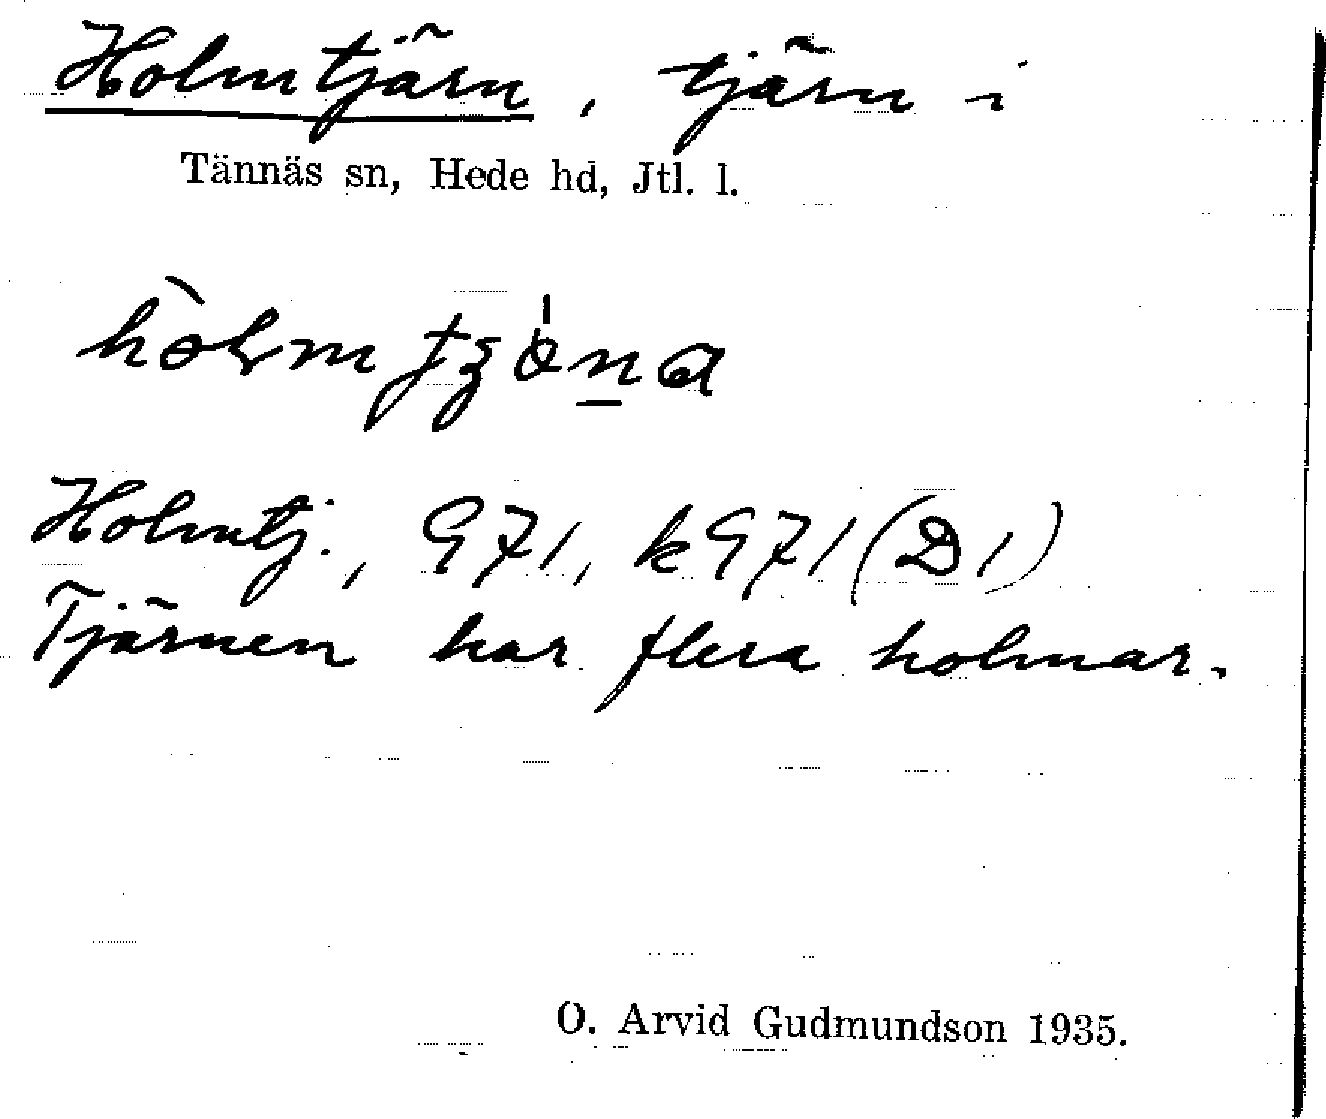 Holmtjärn, tjärn i
Tännäs sn, Hede hd, Jtl. l.
Holmtj., G71, kG71 (D1)
Tjärnen har flera holmar.
O. Arvid Gudmundson 1935.